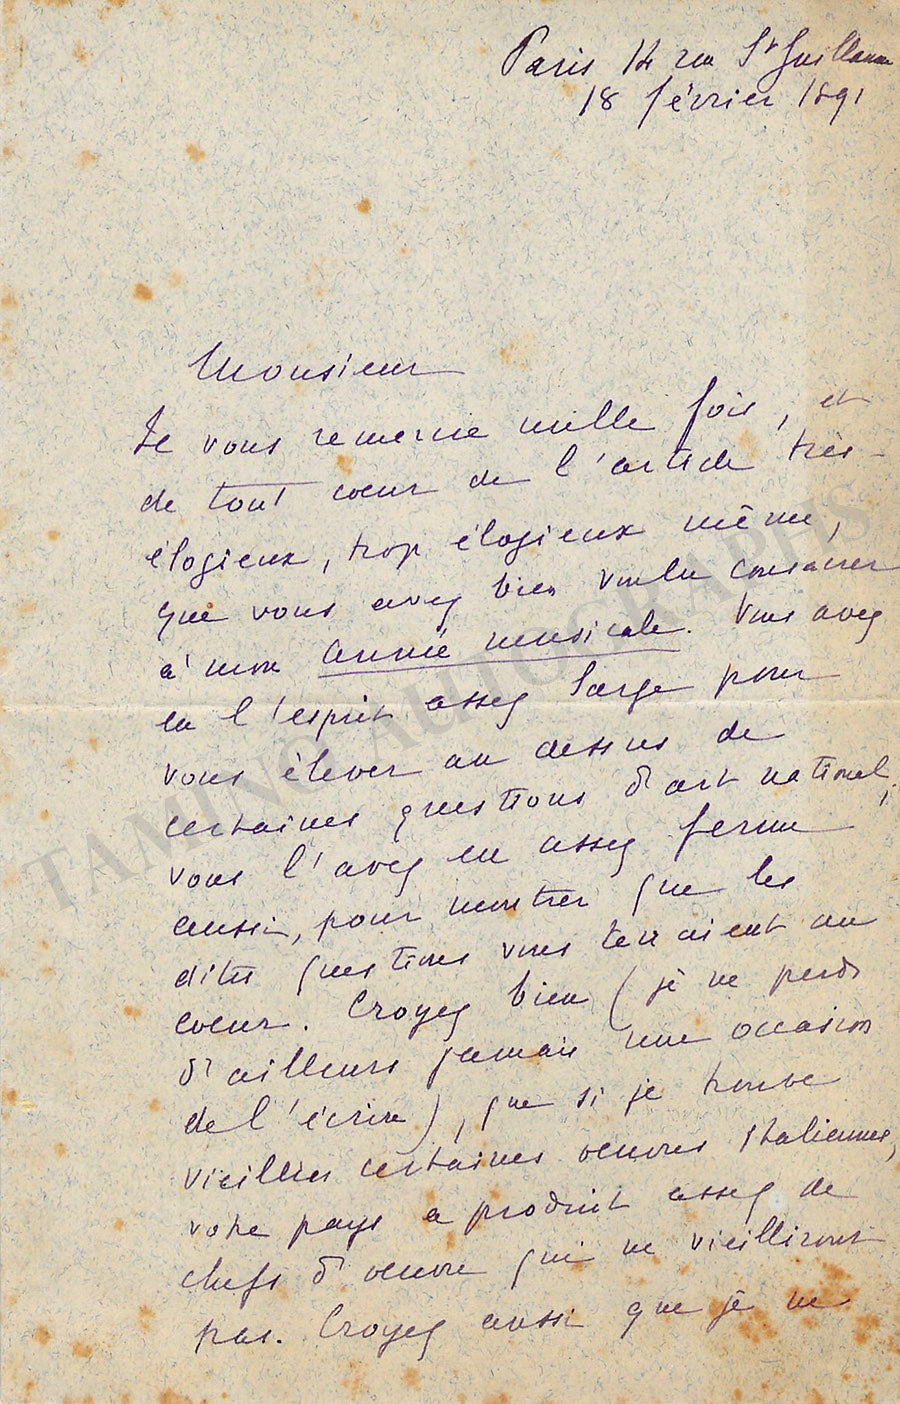 Paris 14 rue St Guillaume
18 février 1891
Monsieur
Je vous remercie mille fois, et
de tout coeur de l'article très-
élogieux, trop élogieux même,
que vous avez bien voulu consacrer
à mon année musicale. Vous avez
eu l'esprit assez large pour
vous élever au dessus de
certaines questions d'art national,
vous l'avez eu assez ferme
aussi, pour montrer que les
dites questions vous tenaient au
coeur. Croyez bien (je ne perds
d'ailleurs jamais une occasion
de l'écrire), que si je trouve
vieillies certaines oeuvres Italiennes,
votre pays a produit assez de
chefs d'oeuvre qui ne vieilliront
pas. Croyez aussi que je ne
TAMINO AUTOGRAPHS